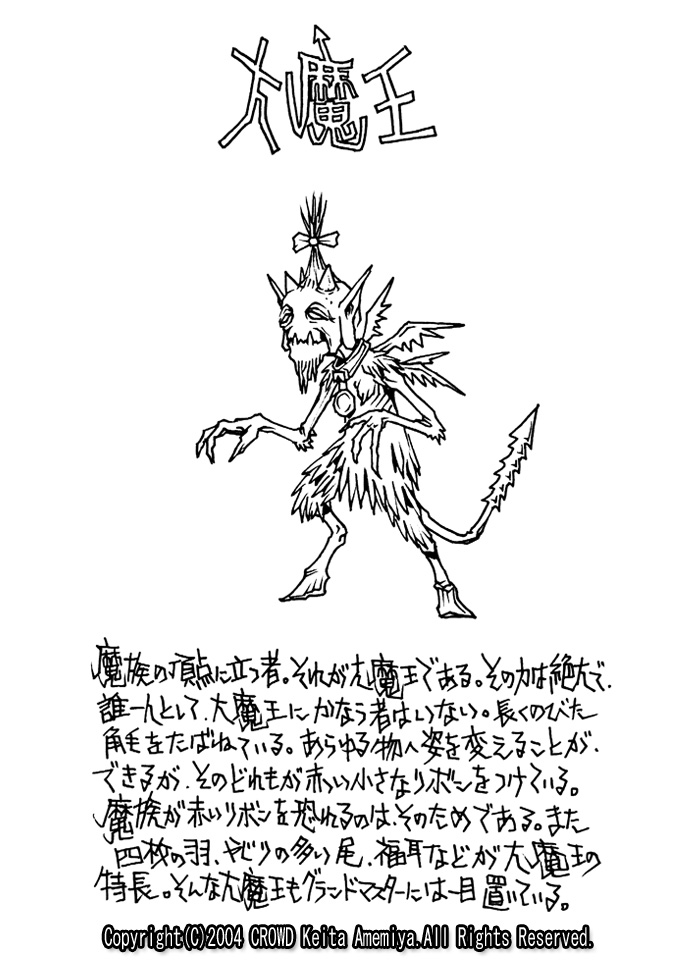 大魔王
魔族の頂点に立つ者。それが大魔王である。その力は絶大で、
誰一人として、大魔王にかなう者はいない。長くのびた
角毛をたばねている。あらゆる物へ姿を変えることが、
できるが、そのどれもが赤い小さなリボンをつけている。
魔族が赤いリボンを恐れるのは、そのためである。また
四枚の羽、ヤジリの多い尾、福耳などが大魔王の
特長。そんな大魔王もグランドマスターには一目置いている。
Copyright(C)2004 CROWD Keita Amemiya.All Rights Reserved.